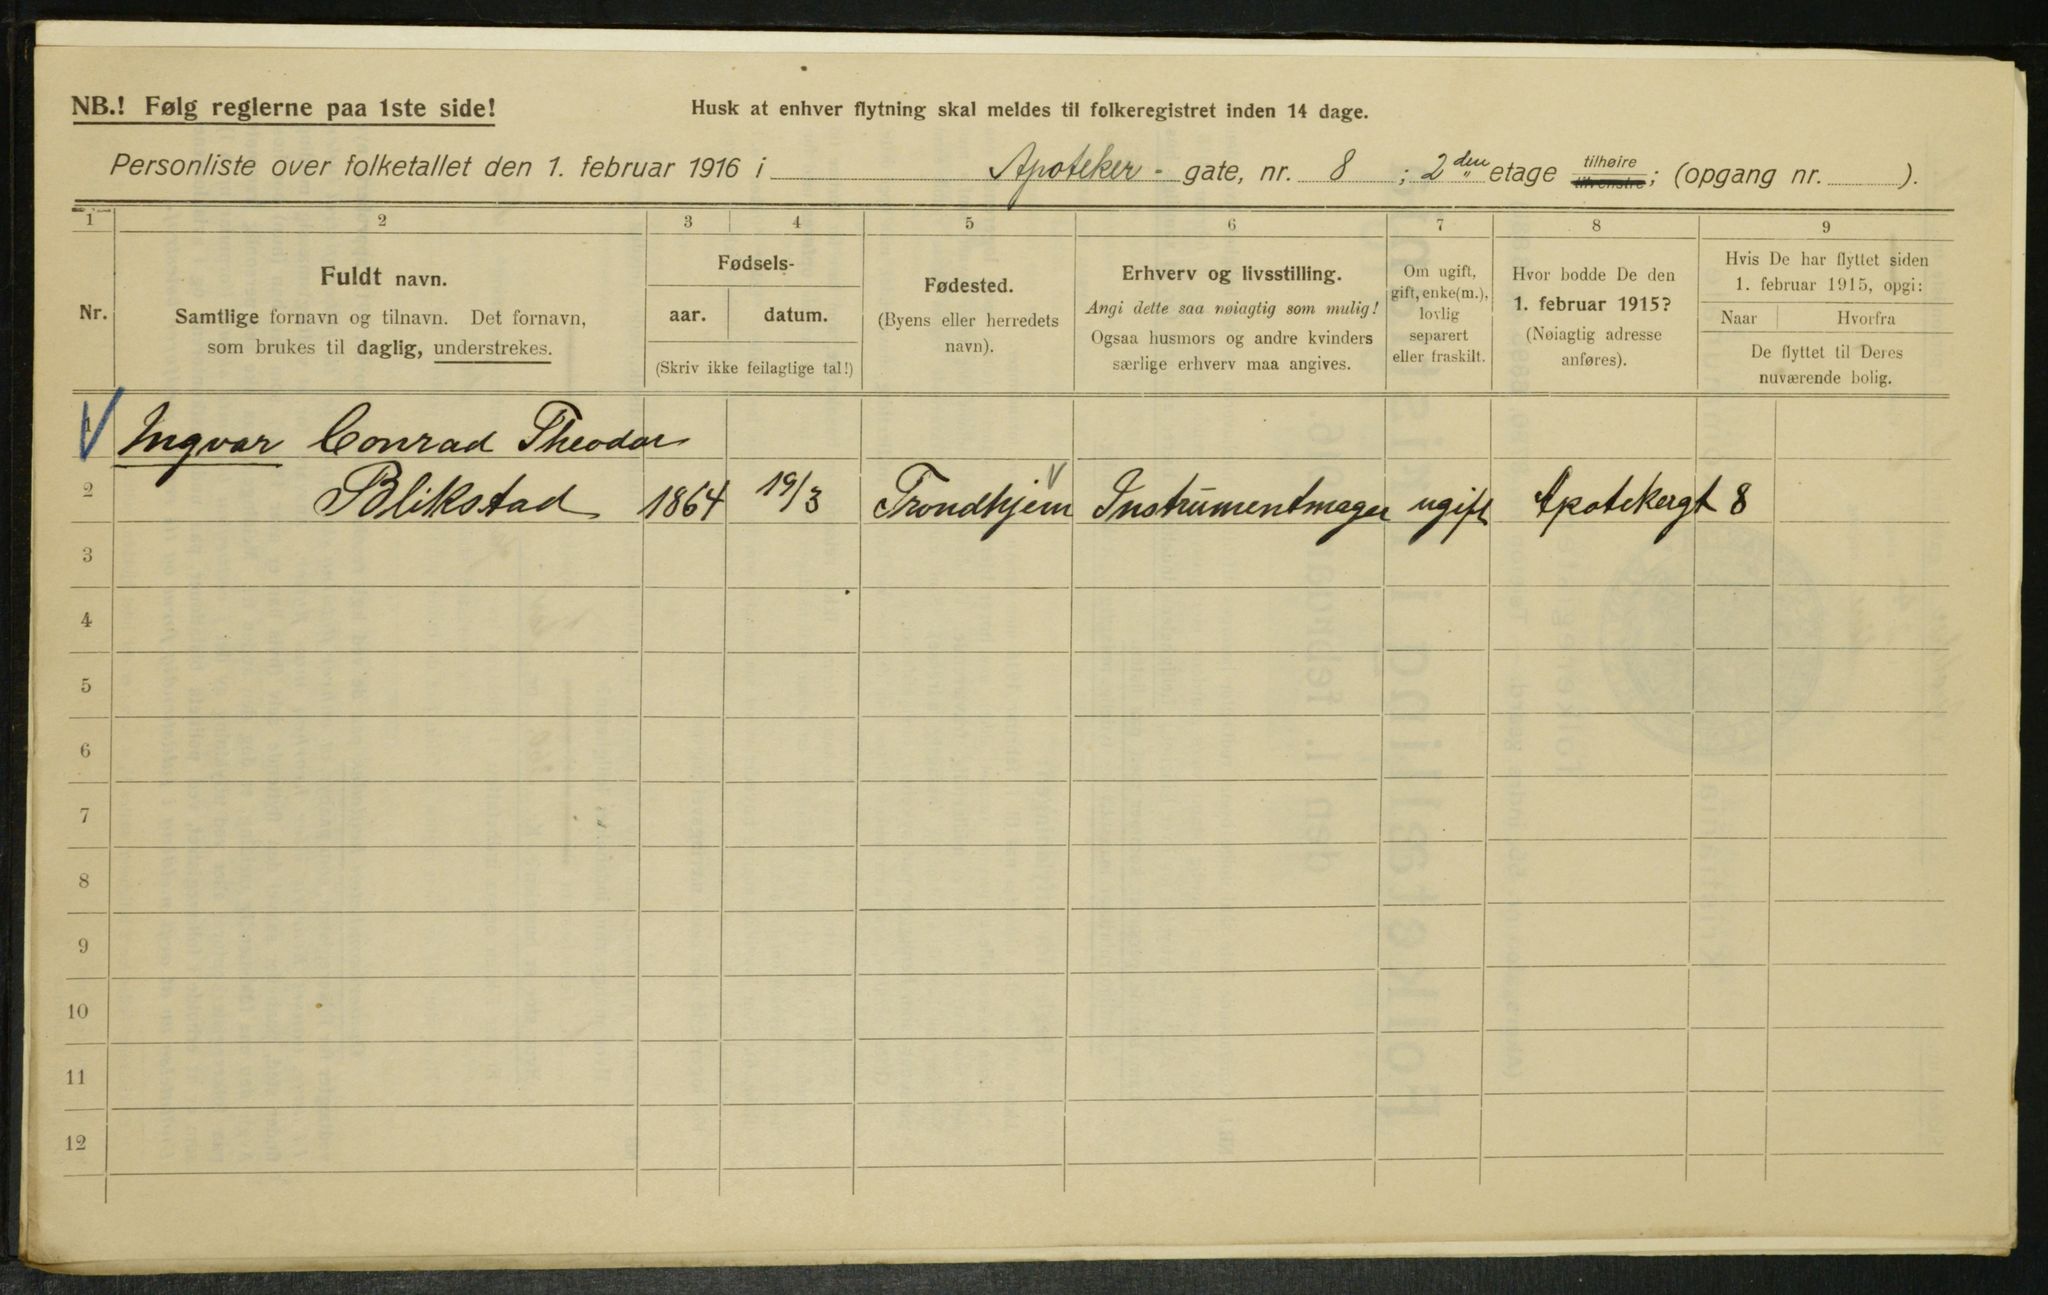 NB.! Følg reglerne paa 1ste side!
Husk at enhver flytning skal meldes til folkeregistret inden 14 dage.
Personliste over folketallet den 1. februar 1916 i Apoteker - gate, nr. 8 ; 2 den etage tilhøire tilvenstre; (opgang nr. ).
1 2 3 4 5 6 7 8 9
Nr.
Fuldt navn.
Samtlige fornavn og tilnavn. Det fornavn,
som brukes til daglig, understrekes.
Fødsels-
aar. datum.
(Skriv ikke feilagtige tal!)
Fødested.
(Byens eller herredets
navn).
Erhverv og livsstilling.
Angi dette saa nøiagtig som mulig!
Ogsaa husmors og andre kvinders
særlige erhverv maa angives.
Om ugift,
gift, enke(m.),
lovlig
separert
eller fraskilt.
Hvor bodde De den
1. februar 1915?
(Nøiagtig adresse
anføres).
Hvis De har flyttet siden
1. februar 1915, opgi:
Naar Hvorfra
De flyttet til Deres
nuværende bolig.
Ingvar Conrad Theodor
2 Blikstad 1864 19/3 Trondhjem Instrumentmager ugift Apotekergt 8
3
4
5
6
7
8
9
10
11
12